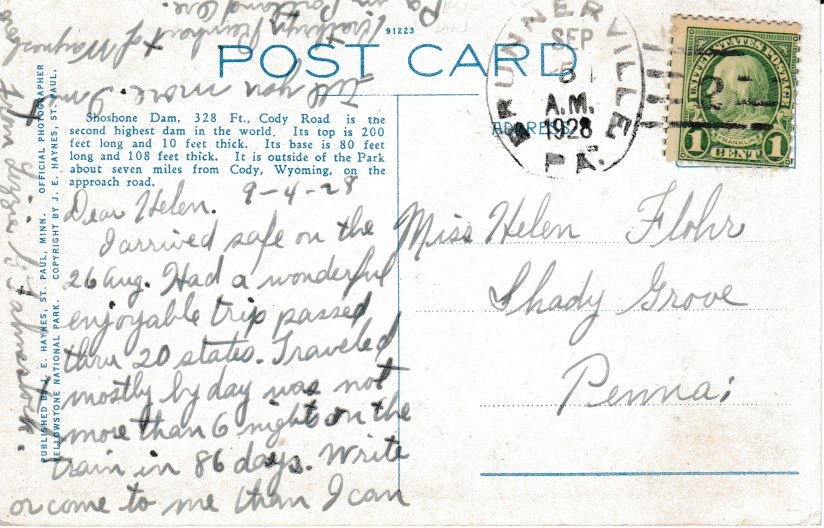 91223
POST CARD
ADDRESS
Shoshone Dam, 328 Ft., Cody Road is the
second highest dam in the world. Its top is 200
feet long and 10 feet thick. Its base is 80 feet
long and 108 feet thick. It is outside of the Park
about seven miles from Cody, Wyoming, on the
approach road.
PUBLISHED BY J. E. HAYNES, ST. PAUL, MINN. OFFICIAL PHOTOGRAPHER
YELLOWSTONE NATIONAL PARK. COPYRIGHT BY J. E. HAYNES, ST. PAUL.
BRUNNERVILLE
PA.
SEP
5
A.M.
1928
UNITED STATES POSTAGE
FRANKLIN
1 CENT 1
9-4-28
Dear Helen.
I arrived safe on the
26 Aug. Had a wonderful
enjoyable trip passed
thru 20 states. Traveled
mostly by day was not
more than 6 nights on the
train in 86 days. Write
or come to me than I can
tell you more. I
Kathryn Reinhart &
in
from Lizzie
Miss Helen Flohr
Shady Grove
Penna: